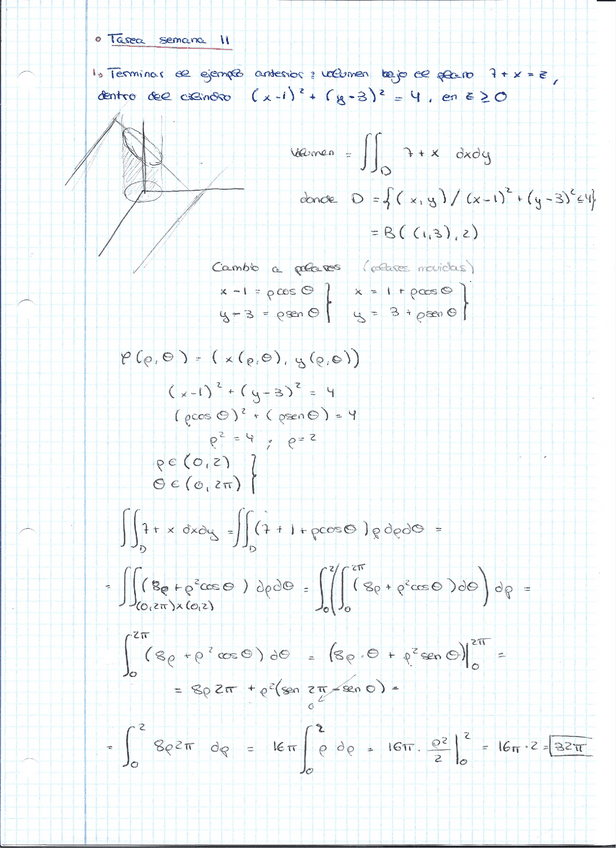 o Tarea semana 11
1. Terminar el ejemplo anterior: volumen bajo el plano 7 + x = z,
dentro del cilindro (x-1)² + (y-3)² = 4, en z ≥ 0
Volumen = ∬_D 7 + x dxdy
donde D = {(x, y) / (x-1)² + (y-3)² ≤ 4}
= B((1,3), 2)
Cambio a polares (polares movidas)
x - 1 = ρcos θ } x = 1 + ρcos θ }
y - 3 = ρsen θ } y = 3 + ρsen θ }
φ(ρ, θ) = (x(ρ, θ), y(ρ, θ))
(x-1)² + (y-3)² = 4
(ρcos θ)² + (ρsen θ) = 4
ρ² = 4 ; ρ = 2
ρ ∈ (0, 2) }
θ ∈ (0, 2π) }
∬_D 7 + x dxdy = ∬_D (7 + 1 + ρcos θ) ρ dρdθ =
= ∬_(0,2π)x(0,2) (8ρ + ρ²cos θ) dρdθ = ∫₀² (∫₀^2π (8ρ + ρ²cos θ) dθ) dρ =
∫₀^2π (8ρ + ρ² cos θ) dθ = (8ρ · θ + ρ² sen θ)|₀^2π =
= 8ρ 2π + ρ²(sen 2π - sen 0) =
0
= ∫₀² 8ρ2π dρ = 16π ∫₀² ρ dρ = 16π · ρ²/2 |₀² = 16π · 2 = 32π